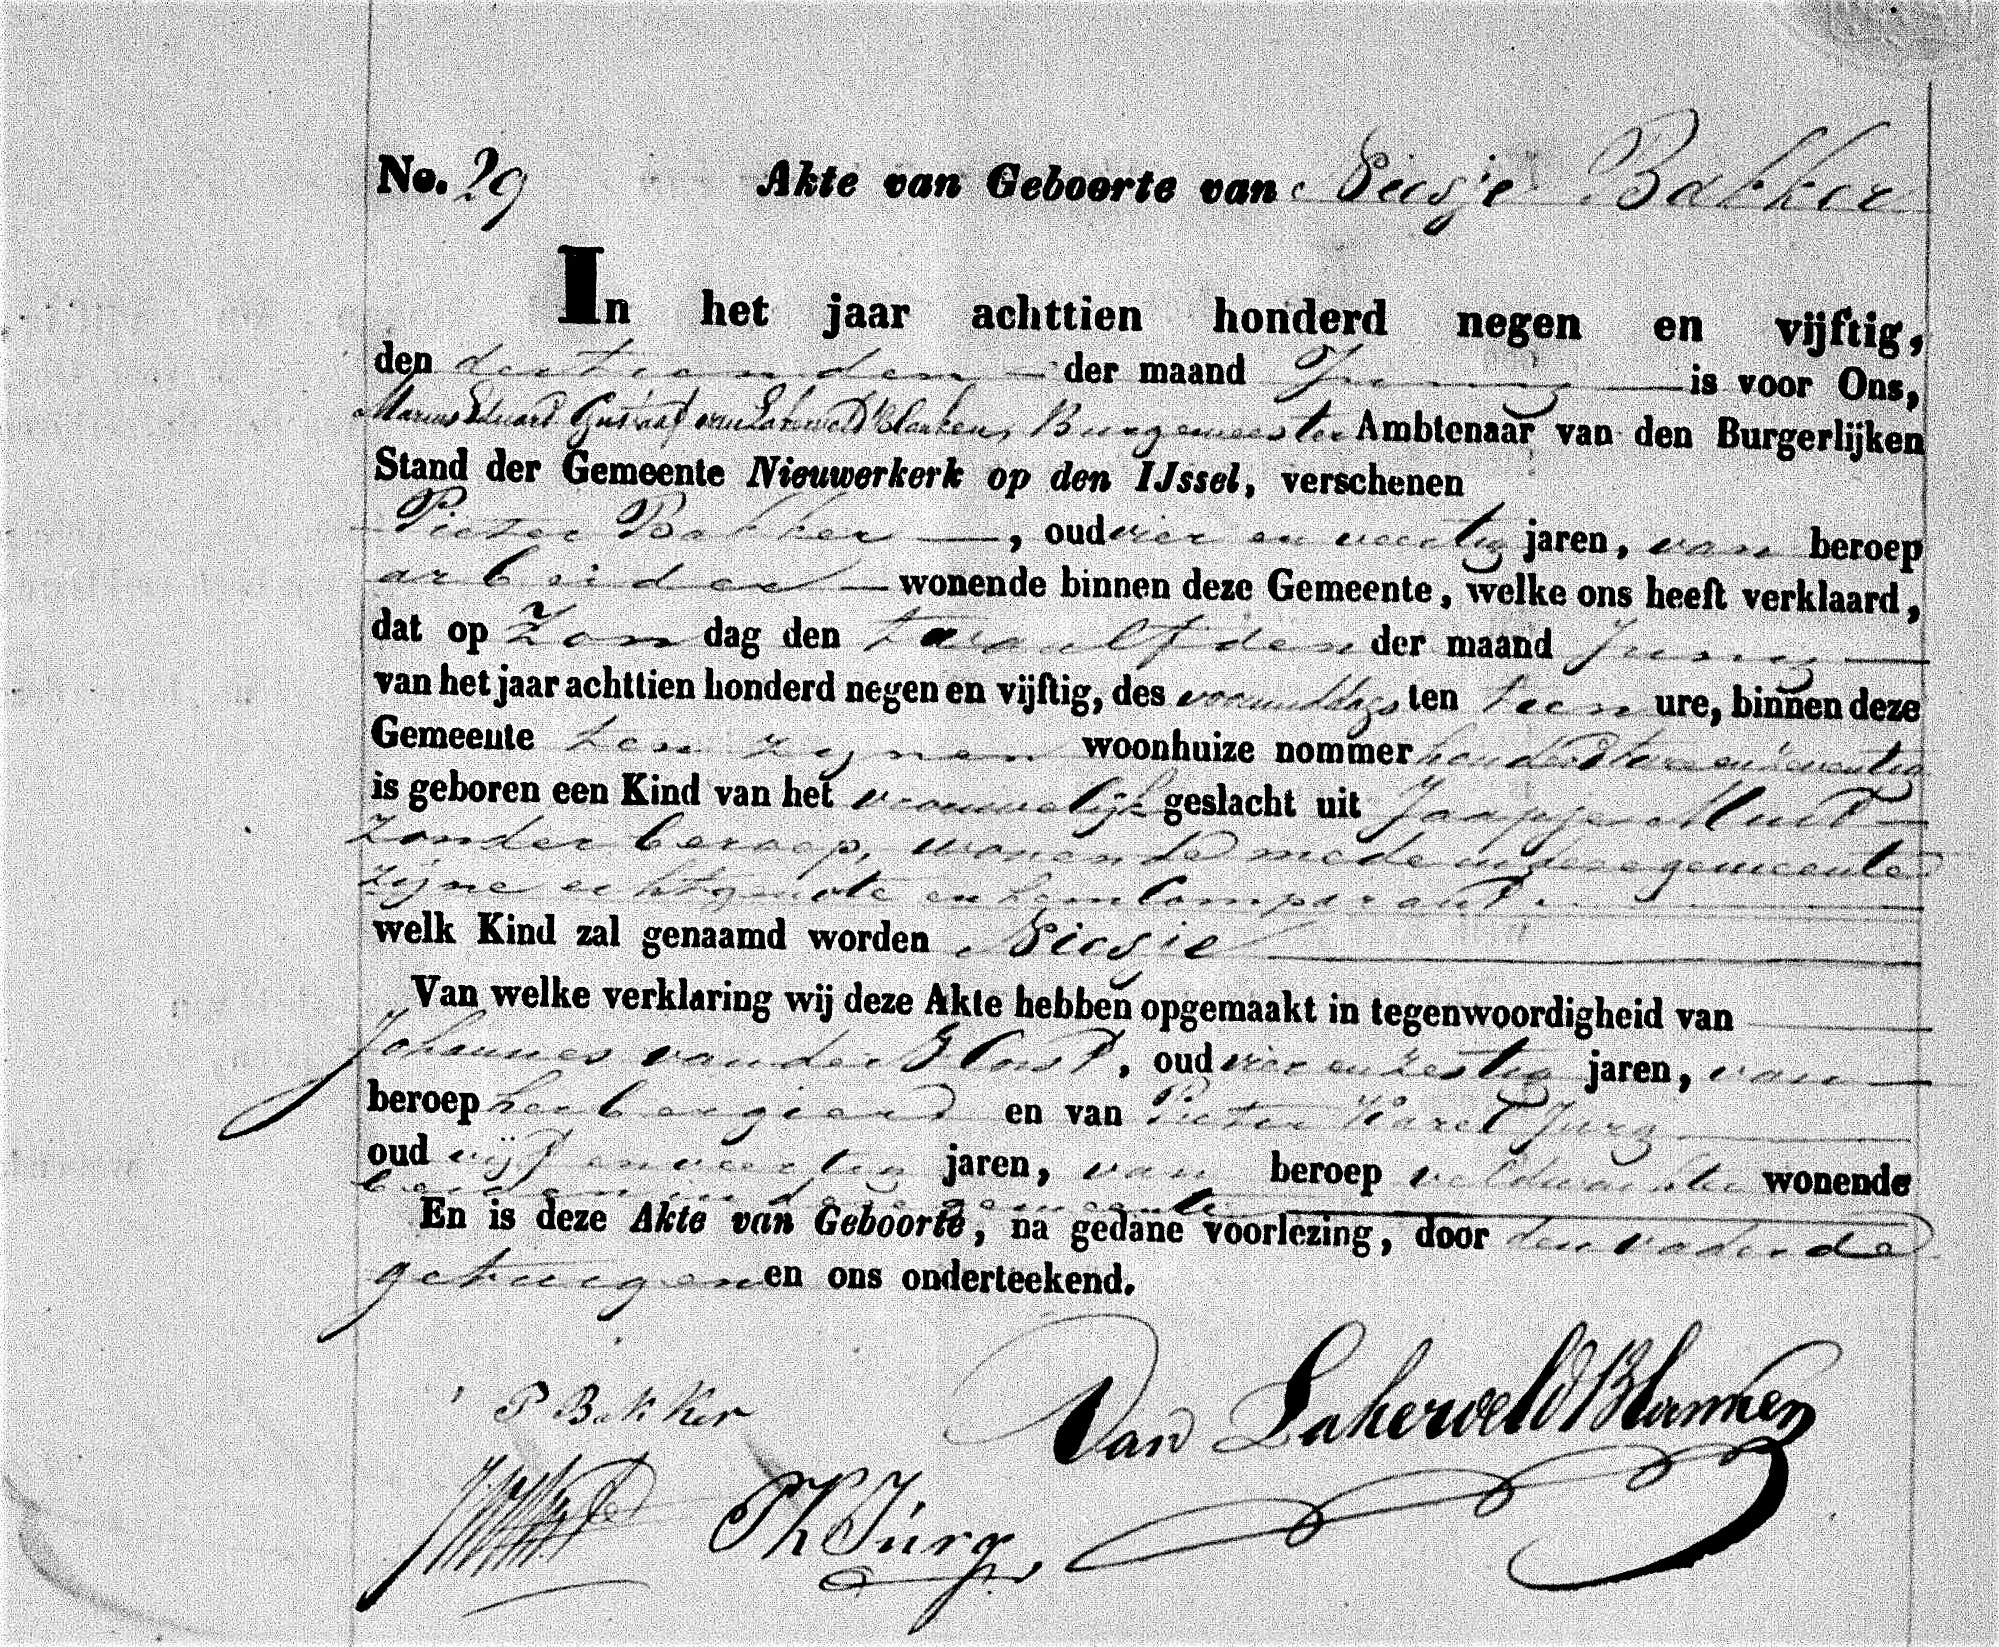 No. 29 Akte van Geboorte van Niesje Bakker
In het jaar achttien honderd negen en vijftig,
den dertienden der maand Juny is voor Ons,
Marius Eduard Gustaaf van Lakerveld Blanken, Burgemeester Ambtenaar van den Burgerlijken
Stand der Gemeente Nieuwerkerk op den IJssel, verschenen
Pieter Bakker, oud vier en veertig jaren, van beroep
arbeider wonende binnen deze Gemeente, welke ons heeft verklaard,
dat op Zon dag den twaalfden der maand Juny
van het jaar achttien honderd negen en vijftig, des voormiddags ten tien ure, binnen deze
Gemeente ten zynen woonhuize nommer honderd twee en zeventig
is geboren een Kind van het vrouwelijk geslacht uit Jaapje Mudt
zonder beroep, wonende mede in deze gemeente
zijne echtgenote en hem Comparant
welk Kind zal genaamd worden Niesje
Van welke verklaring wij deze Akte hebben opgemaakt in tegenwoordigheid van
Johannes van der Horst, oud vier en zestig jaren, van
beroep herbergierd en van Pieter Karel Jurg
oud vijf en veertig jaren, van beroep veldwachter wonende
beiden in deze gemeente
En is deze Akte van Geboorte, na gedane voorlezing, door den vader de
getuigen en ons onderteekend.
P Bakker Van Lakerveld Blanken
PKJurg